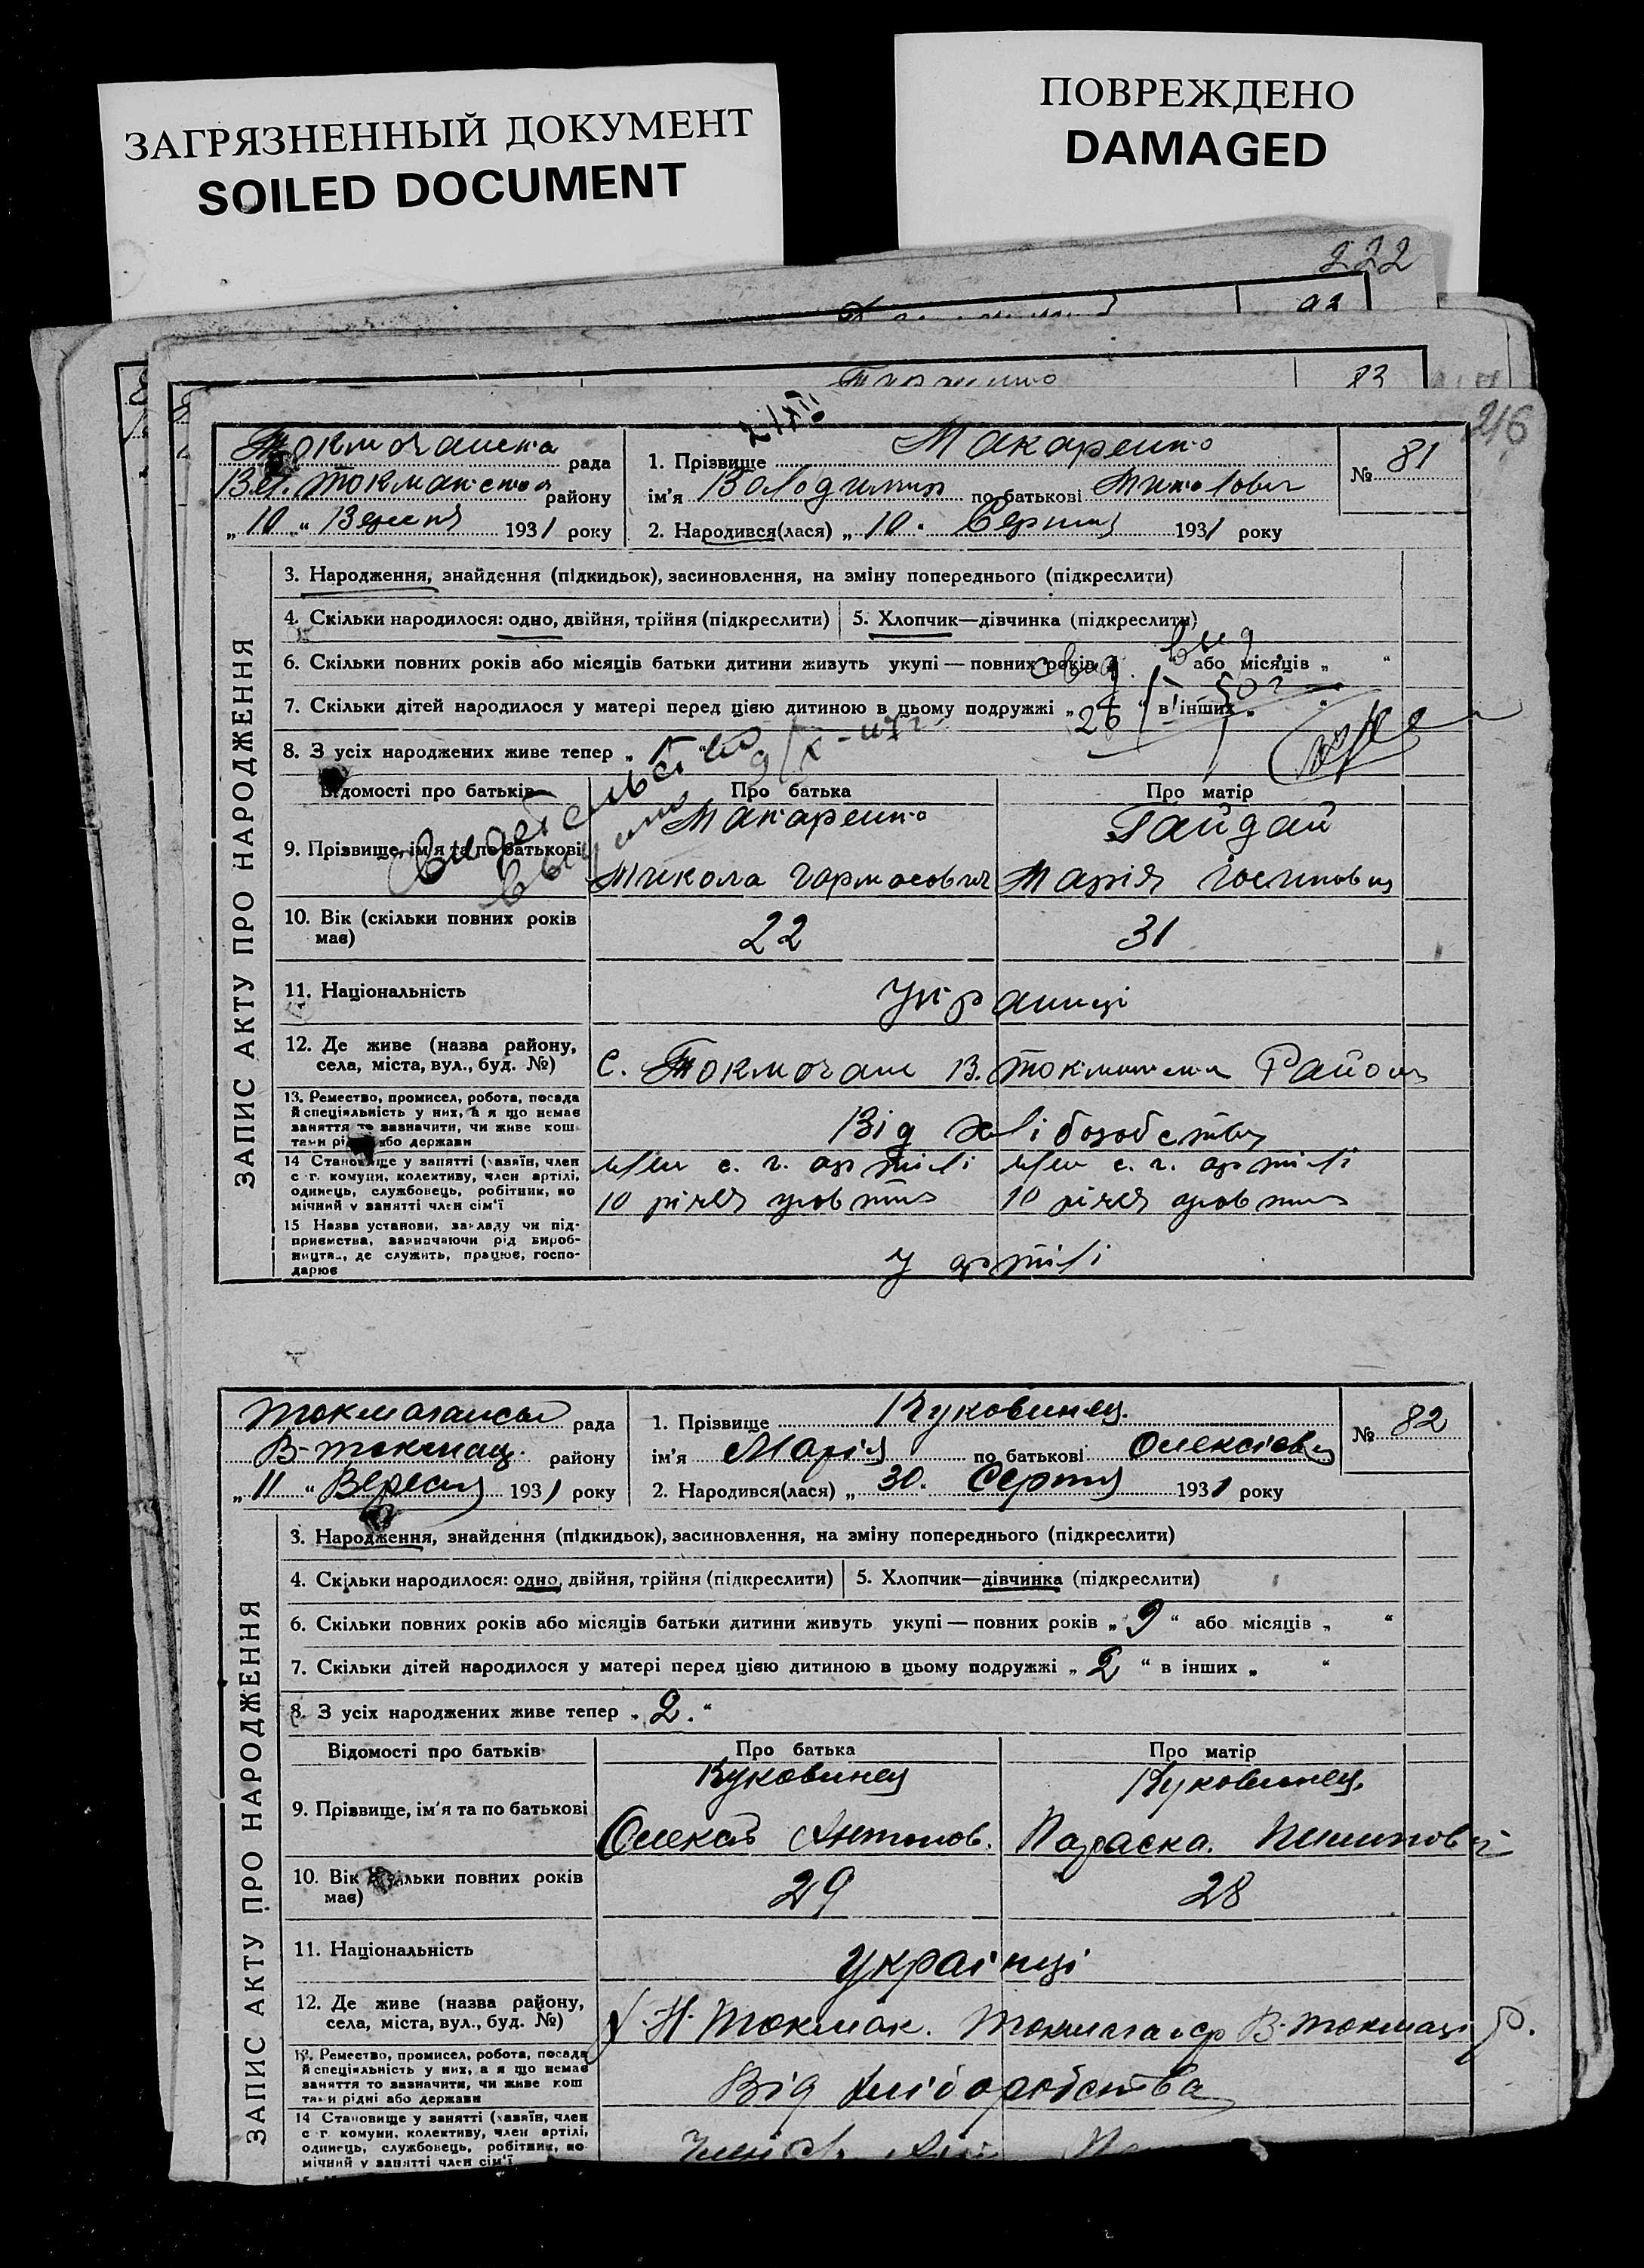 ЗАГРЯЗНЕННЫЙ ДОКУМЕНТ
SOILED DOCUMENT
ПОВРЕЖДЕНО
DAMAGED
222
93
83
216
Токмочанська рада
Вел. Токмакськ району
„ 10 “ Вересня 1931 року
1. Прізвище Макаренко
ім'я Володимир по батькові Миколович
2. Народився(лася) „ 10 “ Серпня 1931 року
№ 81
ЗАПИС АКТУ ПРО НАРОДЖЕННЯ
3. Народження, знайдення (підкидьок), засиновлення, на зміну попереднього (підкреслити)
4. Скільки народилося: одно, двійня, трійня (підкреслити)
5. Хлопчик—дівчинка (підкреслити)
6. Скільки повних років або місяців батьки дитини живуть укупі — повних років або місяців „ “
7. Скільки дітей народилося у матері перед цією дитиною в цьому подружжі „ “ в інших „ “
8. З усіх народжених живе тепер „
Відомості про батьків
Про батька
Про матір
9. Прізвище, ім'я та по батькові
Макаренко
Микола
Гайдай
Марія
10. Вік (скільки повних років має)
22
31
11. Національність
Українці
12. Де живе (назва району, села, міста, вул., буд. №)
с. Токмочан В. Район
13. Ремество, промисел, робота, посада й спеціяльність у них, а я що немає заняття то зазначити, чи живе коштами рідні або держави
Від хліборобства
14 Становище у занятті (хазяїн, член с г. комуни, колективу, член артілі, одинець, службовець, робітник, помічний у занятті член сім'ї
член с. г. артілі
член с. г. артілі
10 річчя жовтня
10 річчя жовтня
15 Назва установи, закладу чи підприємства, зазначаючи рід виробництва, де служить, працює, господарює
у артілі
рада
В-Токмац. району
„ 11 “ Вересня 1931 року
1. Прізвище Куковинец
ім'я Марія по батькові Олексієвна
2. Народився(лася) „ 30. Серпня 1931 року
№ 82
ЗАПИС АКТУ ПРО НАРОДЖЕННЯ
3. Народження, знайдення (підкидьок), засиновлення, на зміну попереднього (підкреслити)
4. Скільки народилося: одно, двійня, трійня (підкреслити)
5. Хлопчик—дівчинка (підкреслити)
6. Скільки повних років або місяців батьки дитини живуть укупі — повних років „ 9 “ або місяців „ “
7. Скільки дітей народилося у матері перед цією дитиною в цьому подружжі „ 2 “ в інших „ “
8. З усіх народжених живе тепер „ 2. “
Відомості про батьків
Про батька
Про матір
9. Прізвище, ім'я та по батькові
Куковинец
Олексій Антонов.
Куковинец
Параска.
10. Вік (скільки повних років має)
29
28
11. Національність
Українці
12. Де живе (назва району, села, міста, вул., буд. №)
Токмак. В-Токмац р.
13. Ремество, промисел, робота, посада й спеціяльність у них, а я що немає заняття то зазначити, чи живе коштами рідні або держави
Від хліборобства
14 Становище у занятті (хазяїн, член с г. комуни, колективу, член артілі, одинець, службовець, робітник, помічний у занятті член сім'ї